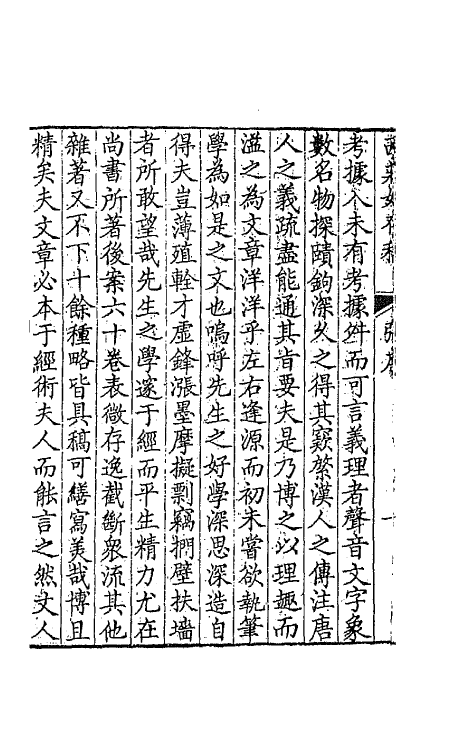 西莊始存稿 張序
考據今未有考據舛而可言義理者聲音文字象
數名物探賾鉤深久之得其窾綮漢人之傳注唐
人之義疏盡能通其旨要夫是乃博之以理趣而
溢之為文章洋洋乎左右逢源而初未嘗欲執筆
學為如是之文也嗚呼先生之好學深思深造自
得夫豈薄殖輇才虛鋒漲墨摩擬剽竊捫壁扶墻
者所敢望哉先生之學邃于經而平生精力尤在
尚書所著後案六十卷表微存逸截斷衆流其他
雜著又不下十餘種略皆具稿可繕寫美哉博且
精矣夫文章必本于經術夫人而能言之然文人